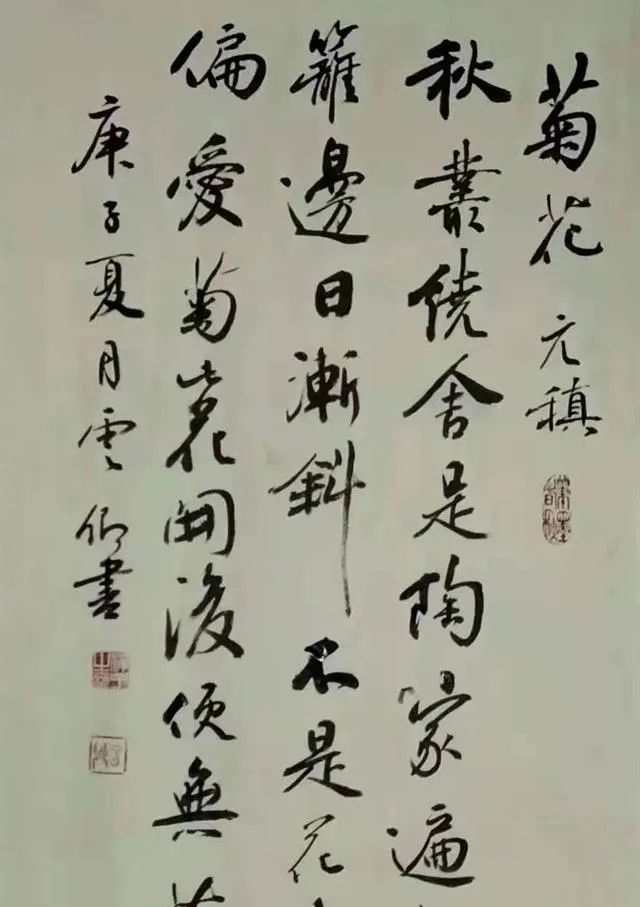 菊花 元稹
秋叢繞舍是陶家遍
籬邊日漸斜不是花
偏愛菊此花開後便無
庚子夏月雲卿書